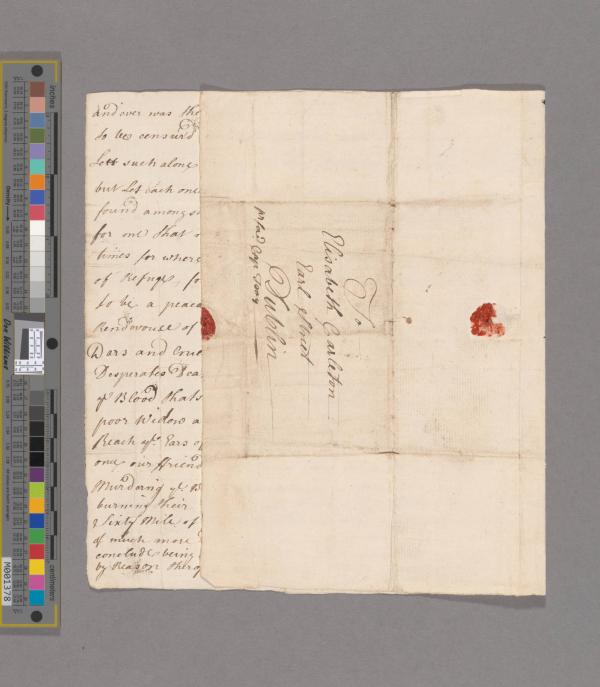 and over was the
to be censurd
Lett such alone
but Let Each one
found among
for one that
times for where
of Refuge, fo
to be a peace
Rendevouse of
Wars and Crue
Desperate Dea
of Blood thats
poor Widow a
Reach ye Ears of
one our ffriend
Murdering ye
burning their
& Sixty Mile of
of much more
conclude being
by Reason therof
To
Elisabeth Carleton
Earl Street
Dublin
inches
centimeters
Density
Don Williams
M001378